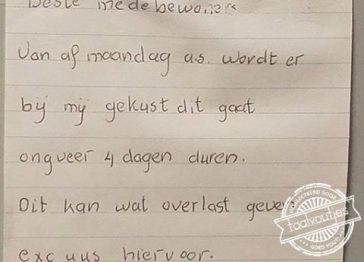 Beste medebewoners
Van af maandag a.s. wordt er
bij mij gekust dit gaat
ongveer 4 dagen duren.
Dit kan wat overlast geven
taalvoutjes
excuus hiervoor.